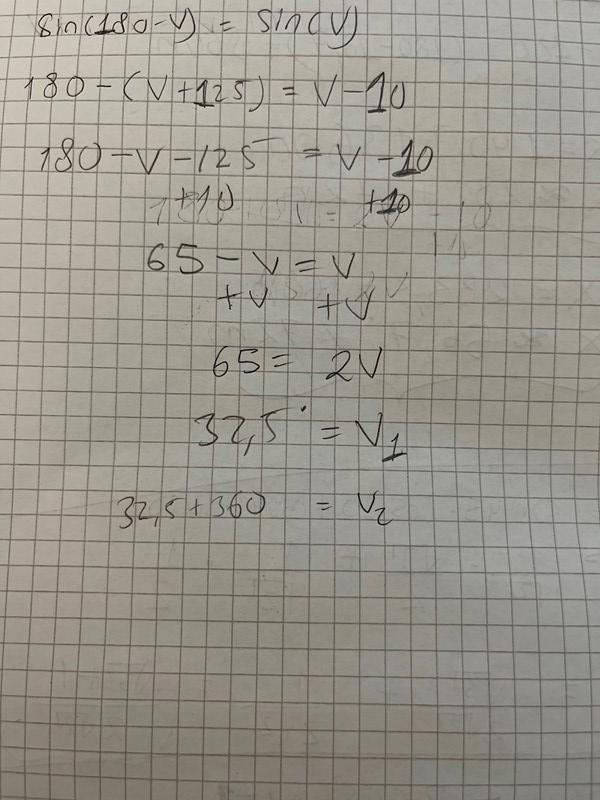 sin(180-v) = sin(v)
180-(v+125) = v-10
180-v-125 = v-10
+10 +10
65-v = v
+v +v
65 = 2v
32,5° = v₁
32,5+360 = v₂